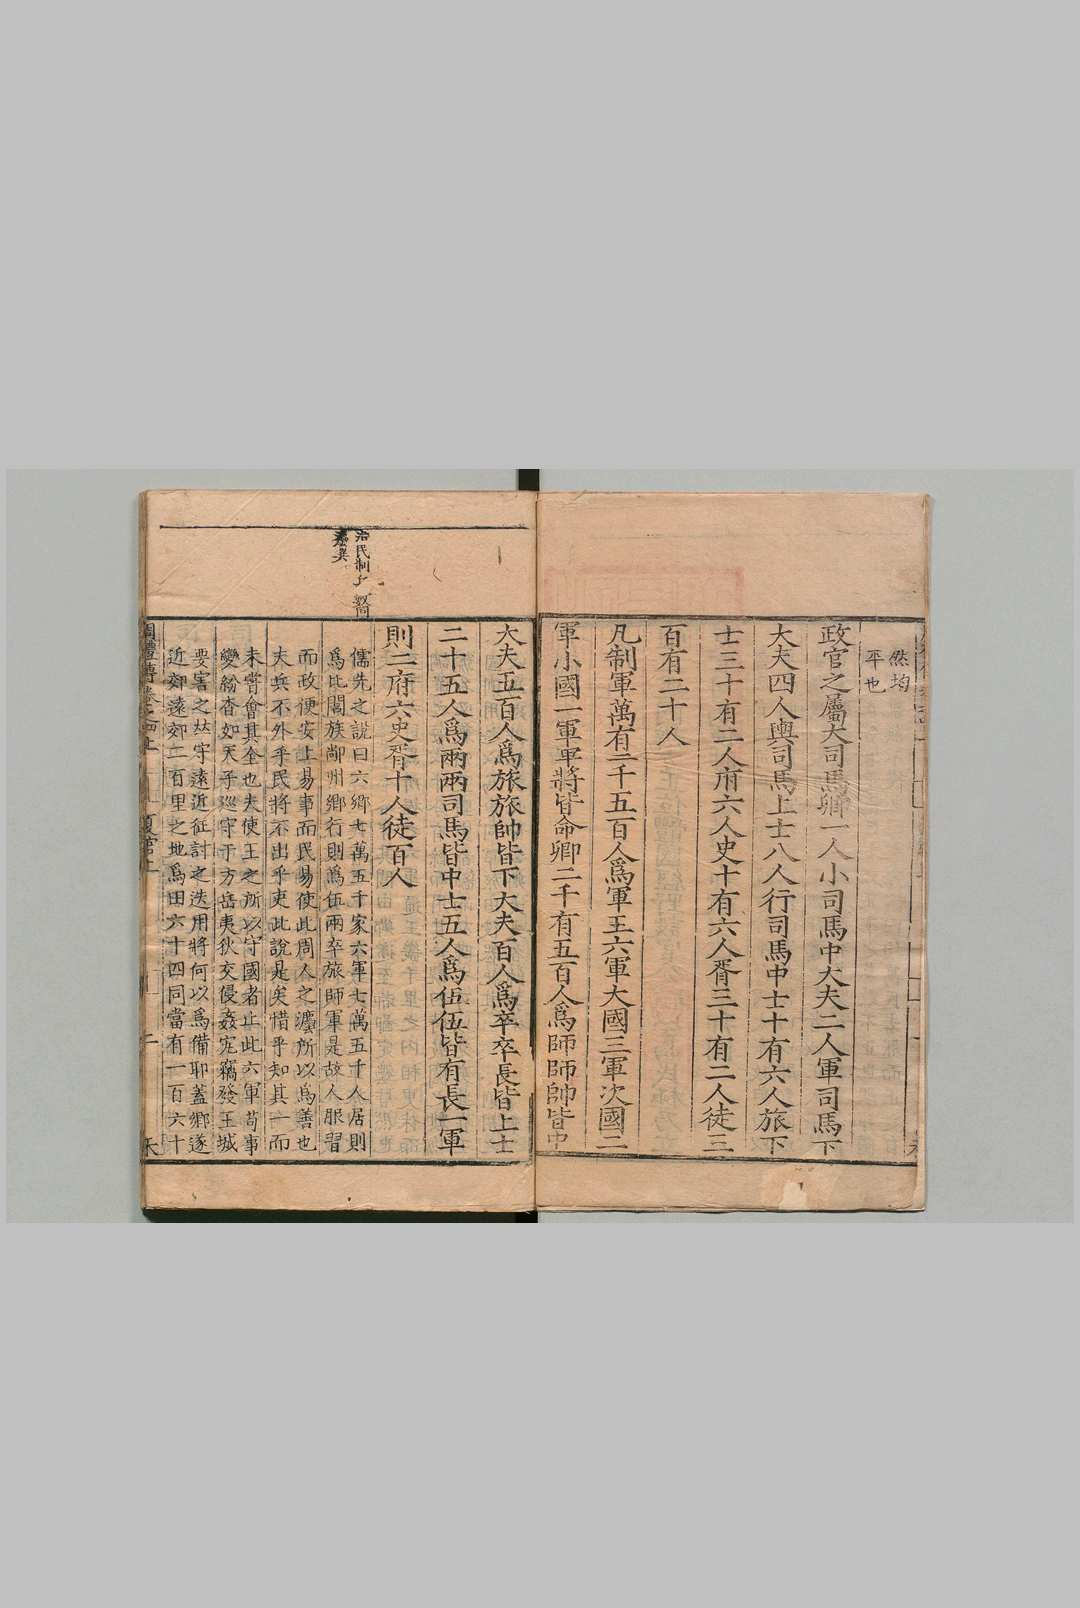 然均
平也
政官之屬大司馬卿一人小司馬中大夫二人軍司馬下
大夫四人輿司馬上士八人行司馬中士十有六人旅下
士三十有二人府六人史十有六人胥三十有二人徒三
百有二十人
凡制軍萬有二千五百人爲軍王六軍大國三軍次國二
軍小國一軍軍將皆命卿二千有五百人爲師師帥皆中
大夫五百人爲旅旅帥皆下大夫百人爲卒卒長皆上士
二十五人爲兩兩司馬皆中士五人爲伍伍皆有長一軍
則二府六史胥十人徒百人
儒先之說曰六鄉七萬五千家六軍七萬五千人居則
爲比閭族鄙州鄉行則爲伍兩卒旅師軍是故人服習
而政便安上易事而民易使此周人之灋所以爲善也
夫兵不外乎民將不出乎吏此說是矣惜乎知其一而
未嘗會其全也夫使王之所以守國者止此六軍苟事
變紛沓如天子巡守于方岳夷狄交侵姦宄竊發王城
要害之㘸守遠近征討之迭用將何以爲備耶蓋鄉遂
近郊遠郊二百里之地爲田六十四同當有一百六十
周禮傳卷之四上
夏官上
二